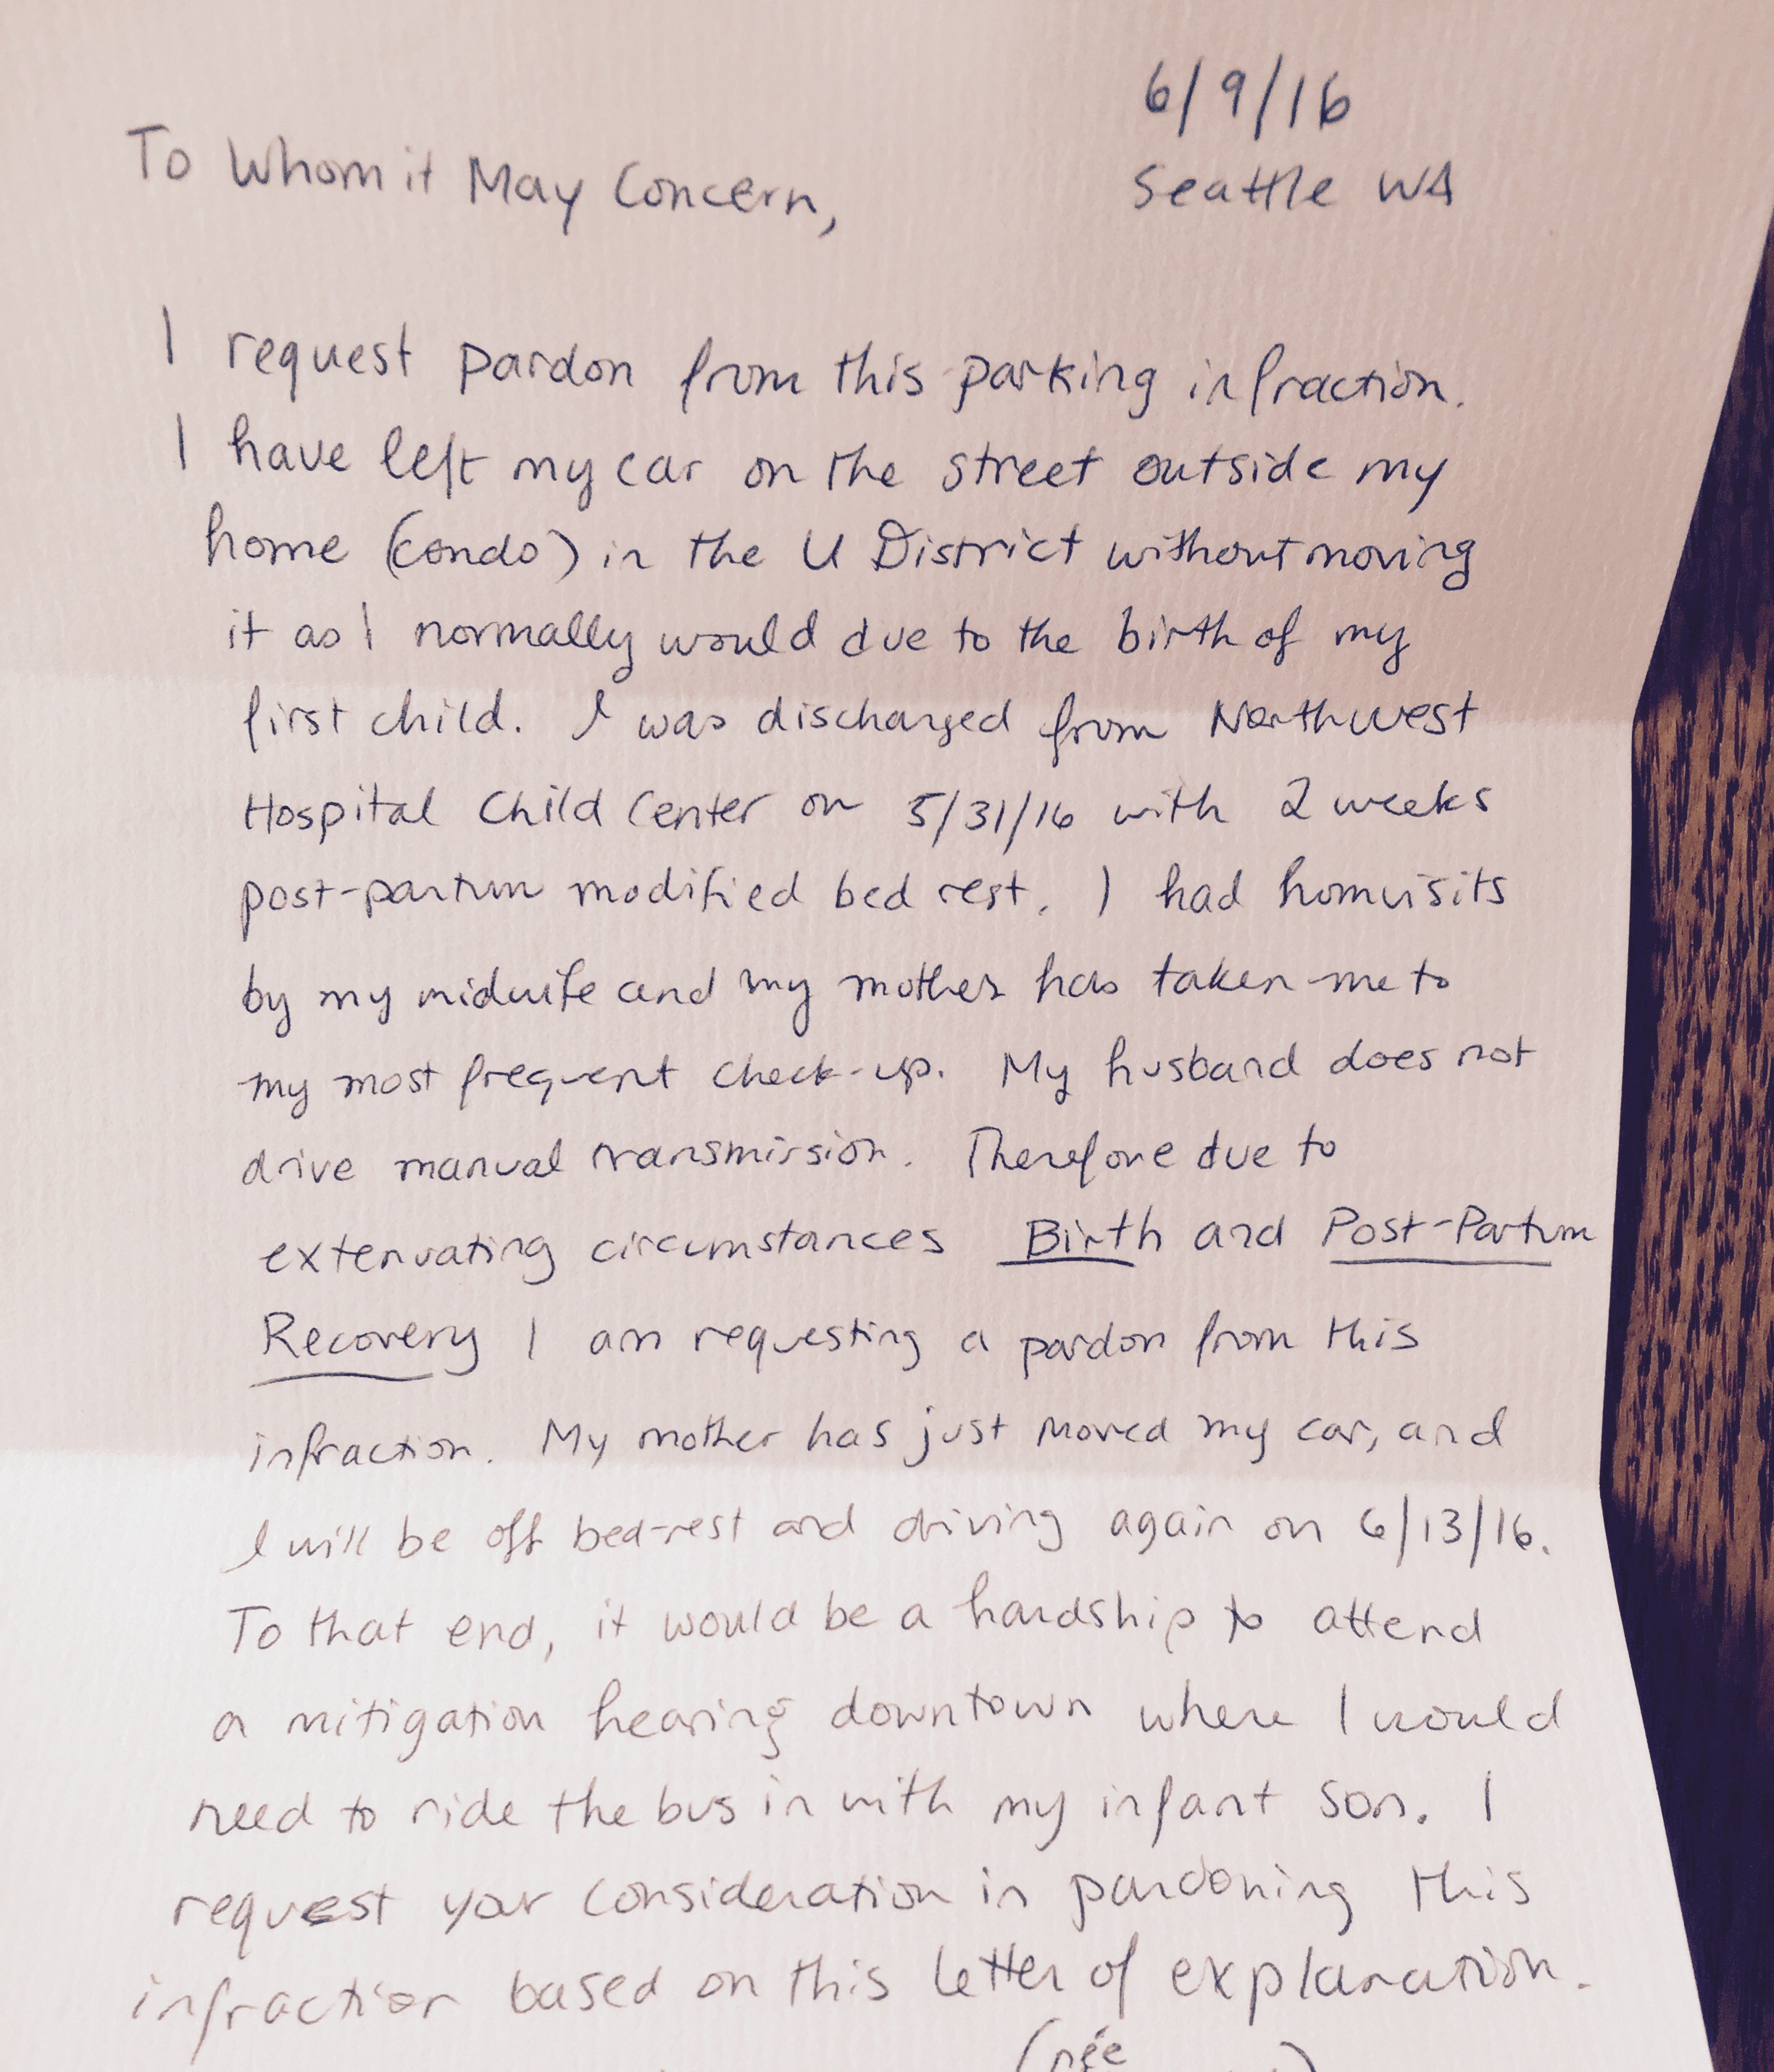 6/9/16
To Whom it May Concern,
Seattle WA
I request pardon from this parking infraction.
I have left my car on the street outside my
home (condo) in the U District without moving
it as I normally would due to the birth of my
first child. I was discharged from Northwest
Hospital Child Center on 5/31/16 with 2 weeks
post-partum modified bed rest. I had homvisits
by my midwife and my mother has taken me to
my most frequent check-up. My husband does not
drive manual transmission. Therefore due to
extenuating circumstances Birth and Post-Partum
Recovery I am requesting a pardon from this
infraction. My mother has just moved my car, and
I will be off bed-rest and driving again on 6/13/16.
To that end, it would be a hardship to attend
a mitigation hearing downtown where I would
need to ride the bus in with my infant son. I
request your consideration in pardoning this
infraction based on this letter of explanation.
(née